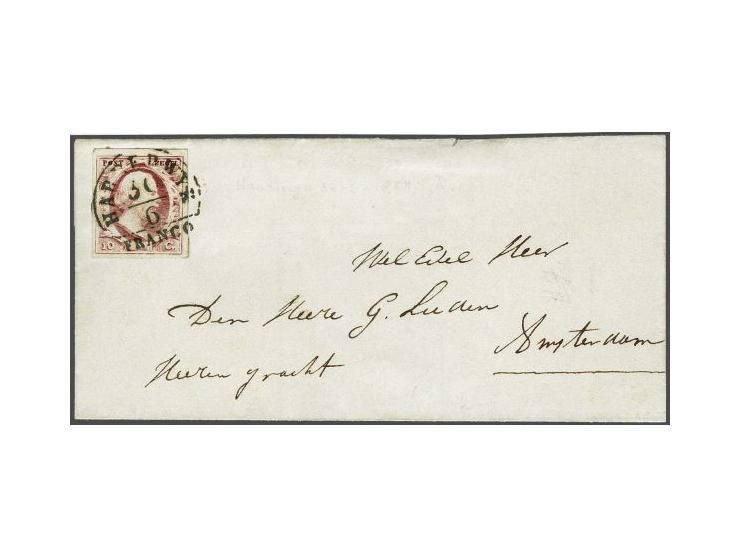 POST ZEGEL
HARDERWYK
30
6
FRANCO
10 C.
Wel Edel Heer
Den Heere G. Luden
Amsterdam
Heeren gracht